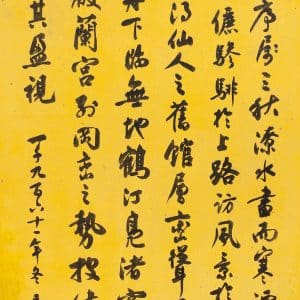 序屬三秋潦水盡而寒
儼驂騑於上路訪風景於
得仙人之舊館層巒聳
丹下臨無地鶴汀鳧渚
殿蘭宮列岡巒之勢披
其盈視
一千九百六十一年冬